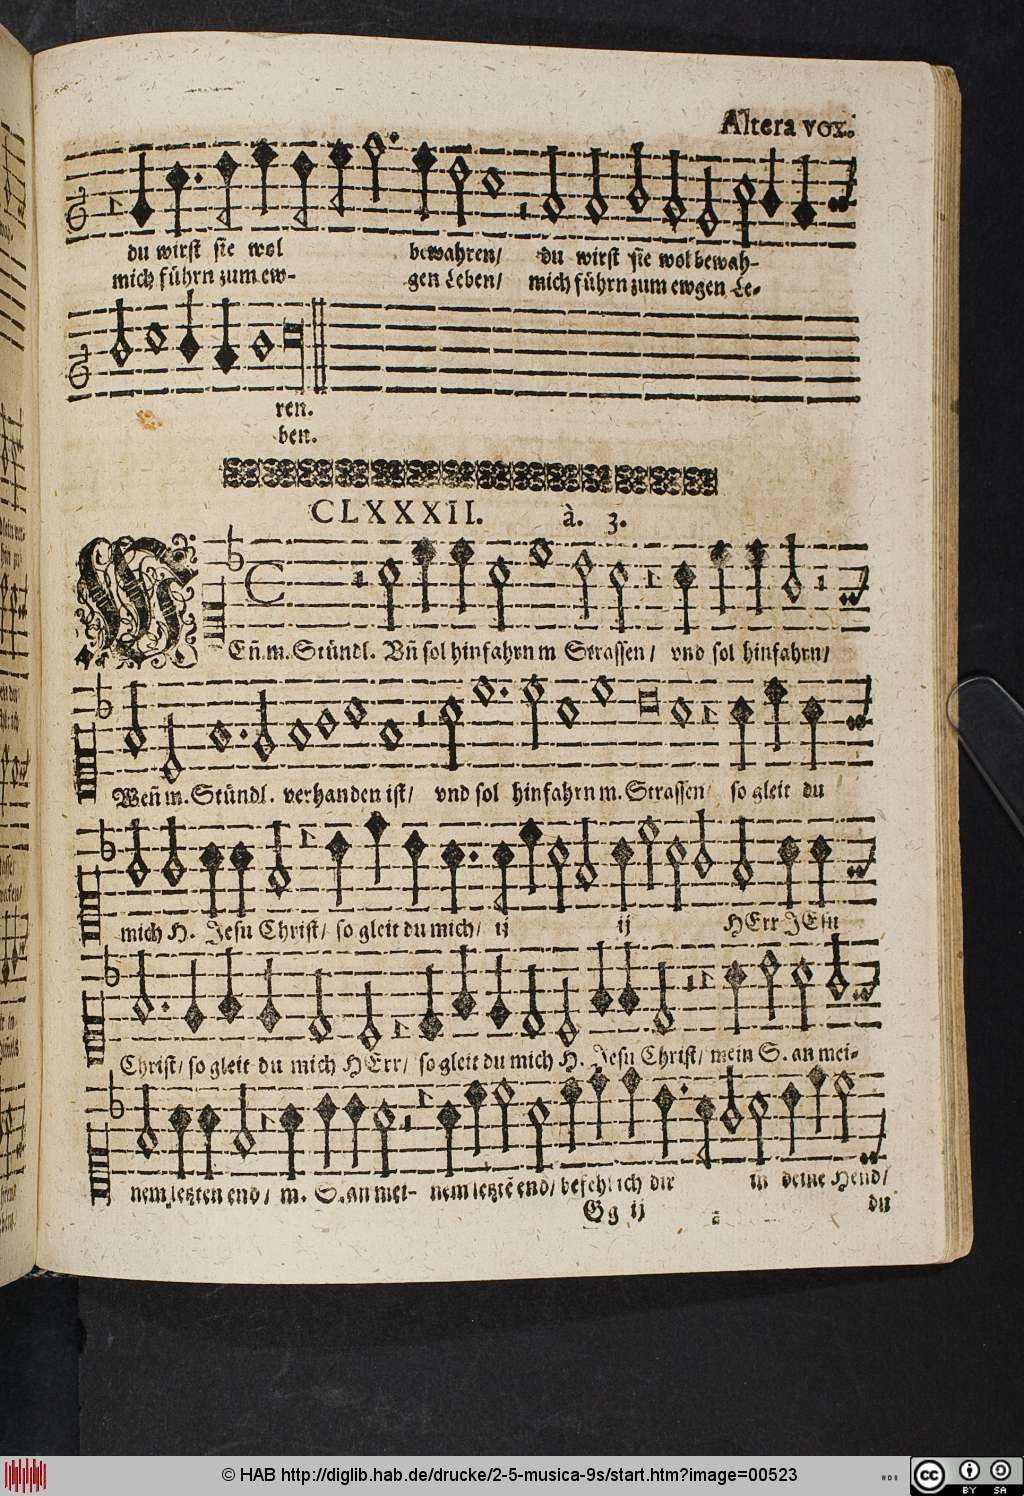 Altera vox.
du wirst sie wol bewahren/ du wirst sie wol bewah-
mich führn zum ew- gen Leben/ mich führn zum ewgen Le-
ren.
ben.
CLXXXII. à. 3.
WEñ m. Stündl. Vñ sol hinfahrn m Strassen/ vnd sol hinfahrn/
Weñ m. Stündl. verhanden ist/ vnd sol hinfahrn m. Strassen/ so gleit du
mich H. Jesu Christ/ so gleit du mich/ ij ij HErr JEsu
Christ/ so gleit du mich HErr/ so gleit du mich H. Jesu Christ/ mein S. an mei-
nem letzten end/ m. S. an mei- nem letztē end/ befehl ich dir in deine Hend/
Gg ij du
© HAB http://diglib.hab.de/drucke/2-5-musica-9s/start.htm?image=00523
cc BY SA